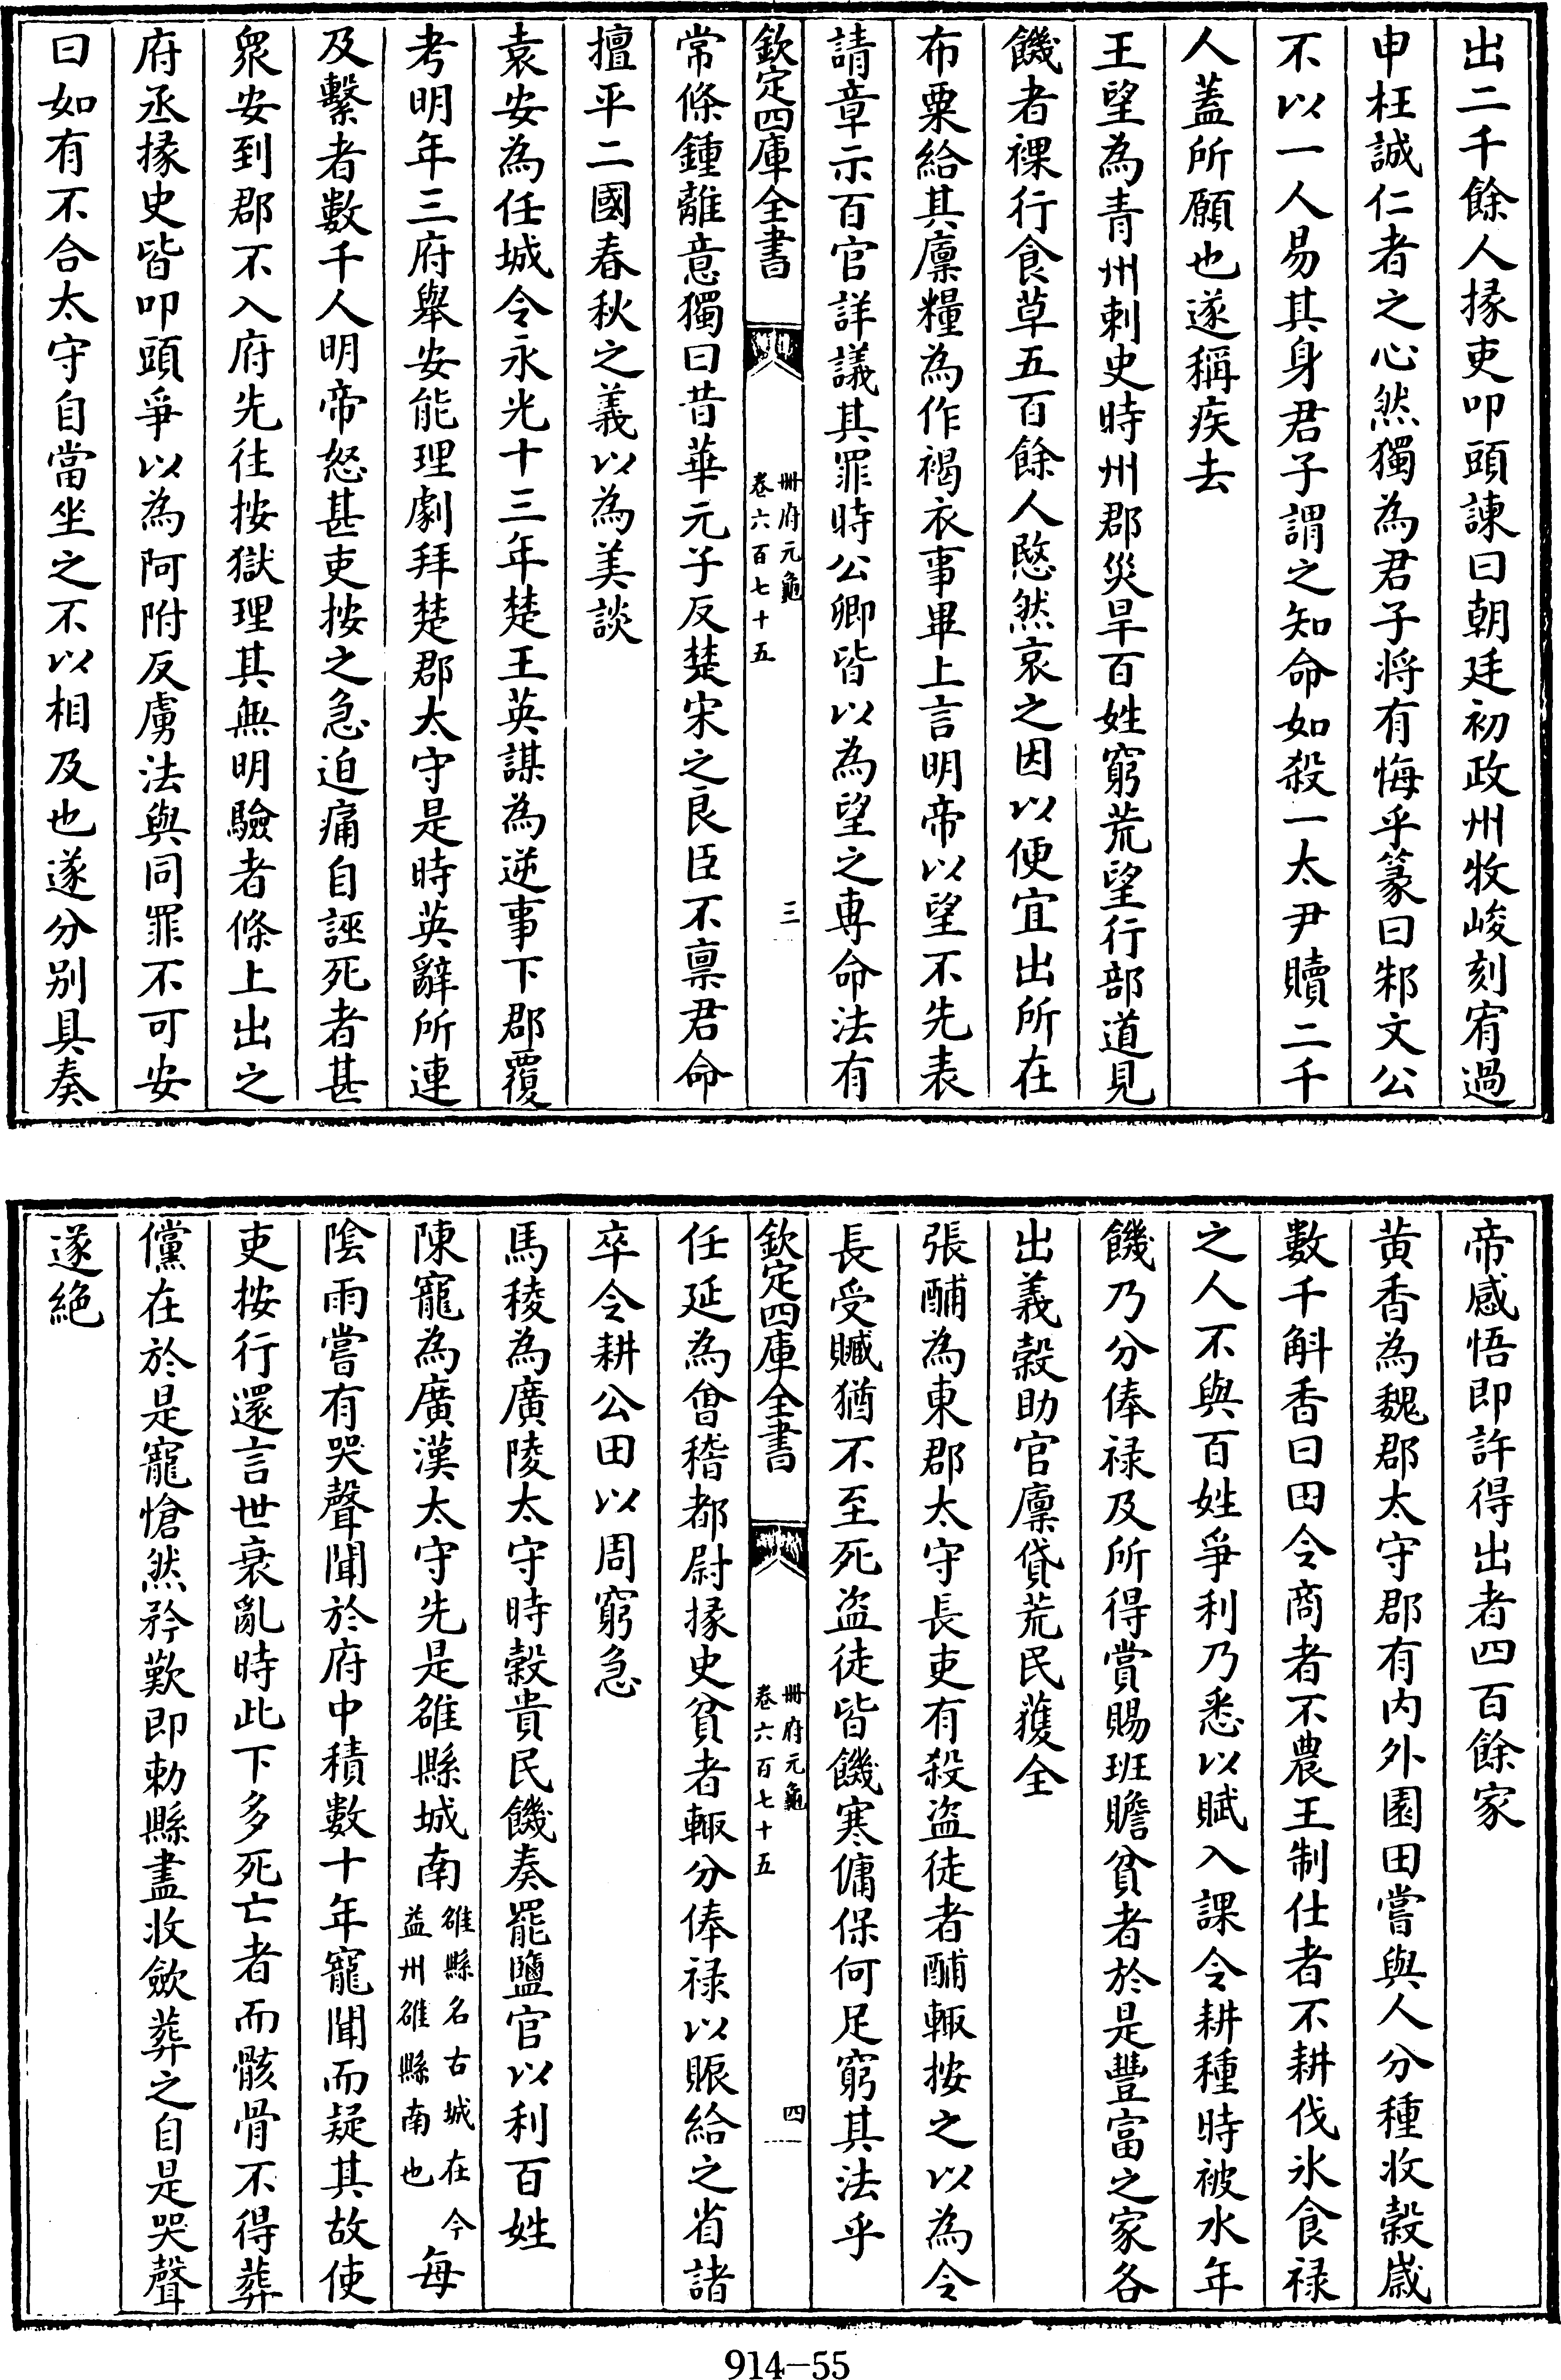 出二千餘人掾吏叩頭諫曰朝廷初政州牧峻刻宥過
申枉誠仁者之心然獨為君子将有悔乎篆曰邾文公
不以一人易其身君子謂之知命如殺一太尹贖二千
人蓋所願也遂稱疾去
王望為青州刺史時州郡災旱百姓窮荒望行部道見
饑者裸行食草五百餘人愍然哀之因以便宜出所在
布粟給其廩糧為作褐衣事畢上言明帝以望不先表
請章示百官詳議其罪時公卿皆以為望之専命法有
欽定四庫全書
冊府元龜
卷六百七十五
三
常條鍾離意獨曰昔華元子反楚宋之良臣不禀君命
擅平二國春秋之義以為美談
袁安為任城令永光十三年楚王英謀為逆事下郡覆
考明年三府舉安能理劇拜楚郡太守是時英辭所連
及繫者數千人明帝怒甚吏按之急迫痛自誣死者甚
衆安到郡不入府先往按獄理其無明驗者條上出之
府丞掾史皆叩頭爭以為阿附反虜法與同罪不可安
曰如有不合太守自當坐之不以相及也遂分别具奏
帝感悟即許得出者四百餘家
黄香為魏郡太守郡有内外園田嘗與人分種收榖歳
數千斛香曰田令商者不農王制仕者不耕伐氷食禄
之人不與百姓爭利乃悉以賦入課令耕種時被水年
饑乃分俸禄及所得賞賜班贍貧者於是豐富之家各
出義榖助官廩貸荒民獲全
張酺為東郡太守長吏有殺盜徒者酺輙按之以為令
長受贓猶不至死盜徒皆饑寒傭保何足窮其法乎
欽定四庫全書
冊府元龜
卷六百七十五
四
任延為會稽都尉掾史貧者輙分俸禄以賑給之省諸
卒令耕公田以周窮急
馬稜為廣陵太守時榖貴民饑奏罷鹽官以利百姓
陳寵為廣漢太守先是雒縣城南雒縣名古城在今益州雒縣南也每
陰雨嘗有哭聲聞於府中積數十年寵聞而疑其故使
吏按行還言世衰亂時此下多死亡者而骸骨不得葬
儻在於是寵愴然矜歎即勅縣盡收歛葬之自是哭聲
遂絶
914-55